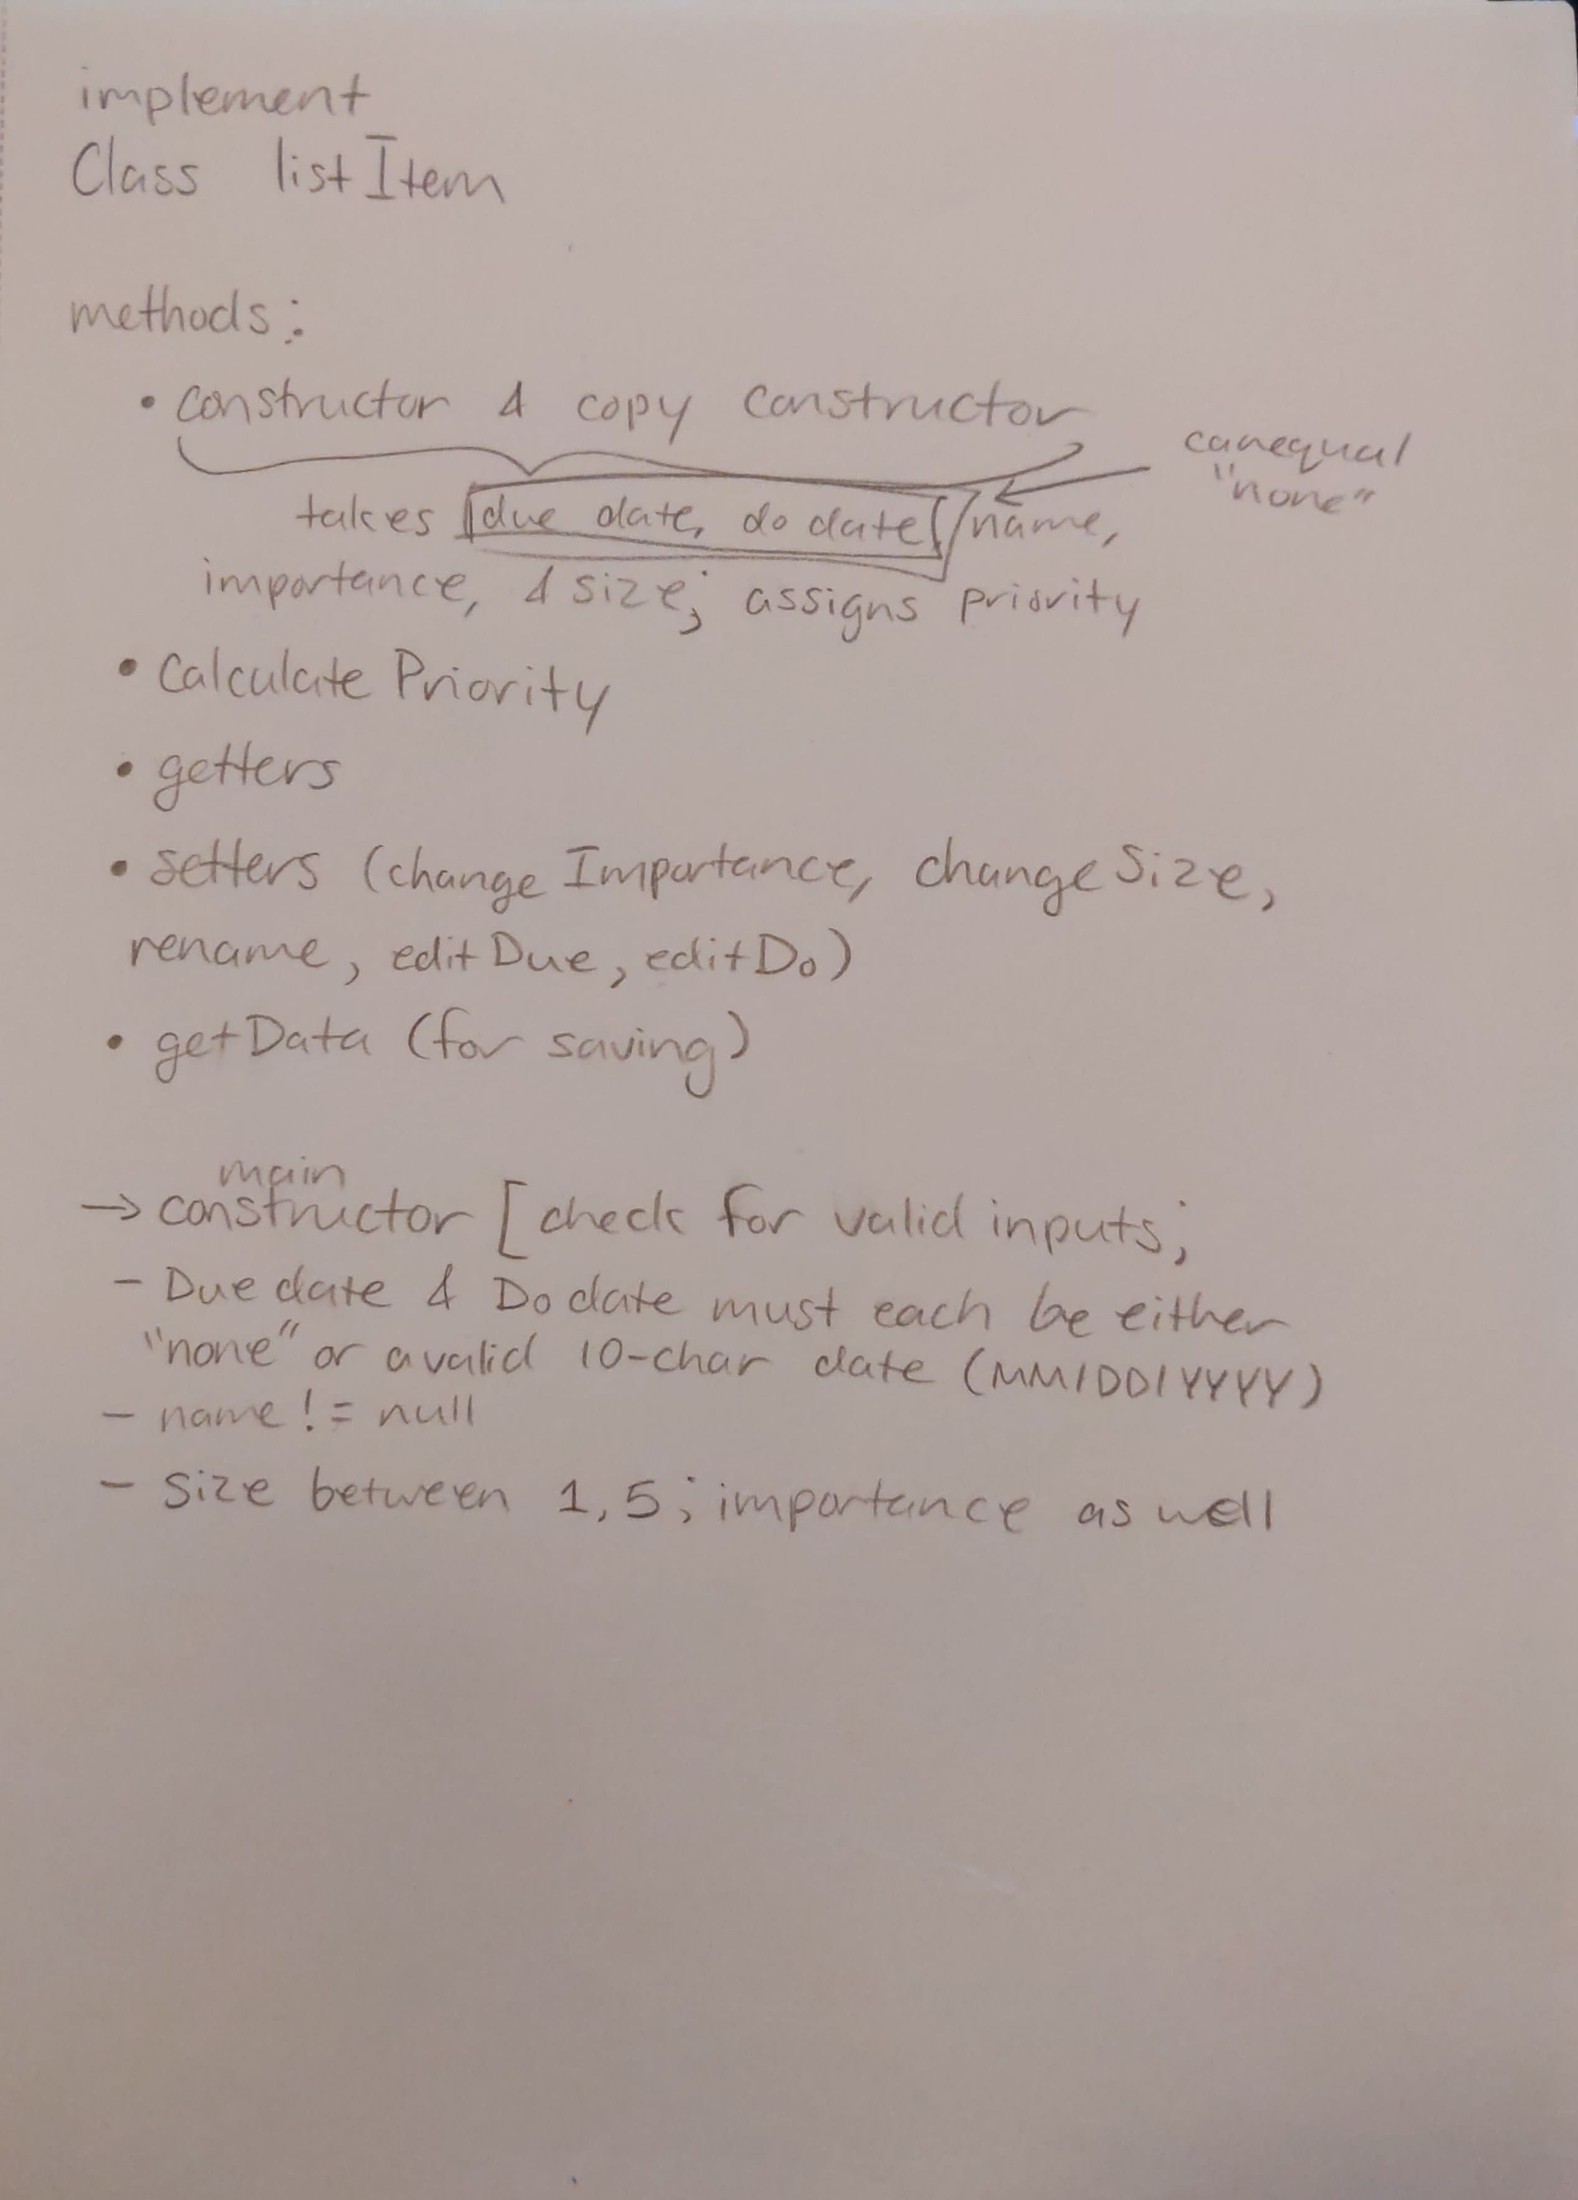 implement
Class listItem
methods:
• constructor & copy constructor
canequal
"none"
takes due date, do date, name,
importance, & size; assigns priority
• Calculate Priority
• getters
• setters (change Importance, changeSize,
rename, editDue, editDo)
• getData (for saving)
main
→ constructor [check for valid inputs;
- Due date & Do date must each be either
"none" or a valid 10-char date (MM/DD/YYYY)
- name != null
- Size between 1,5; importance as well